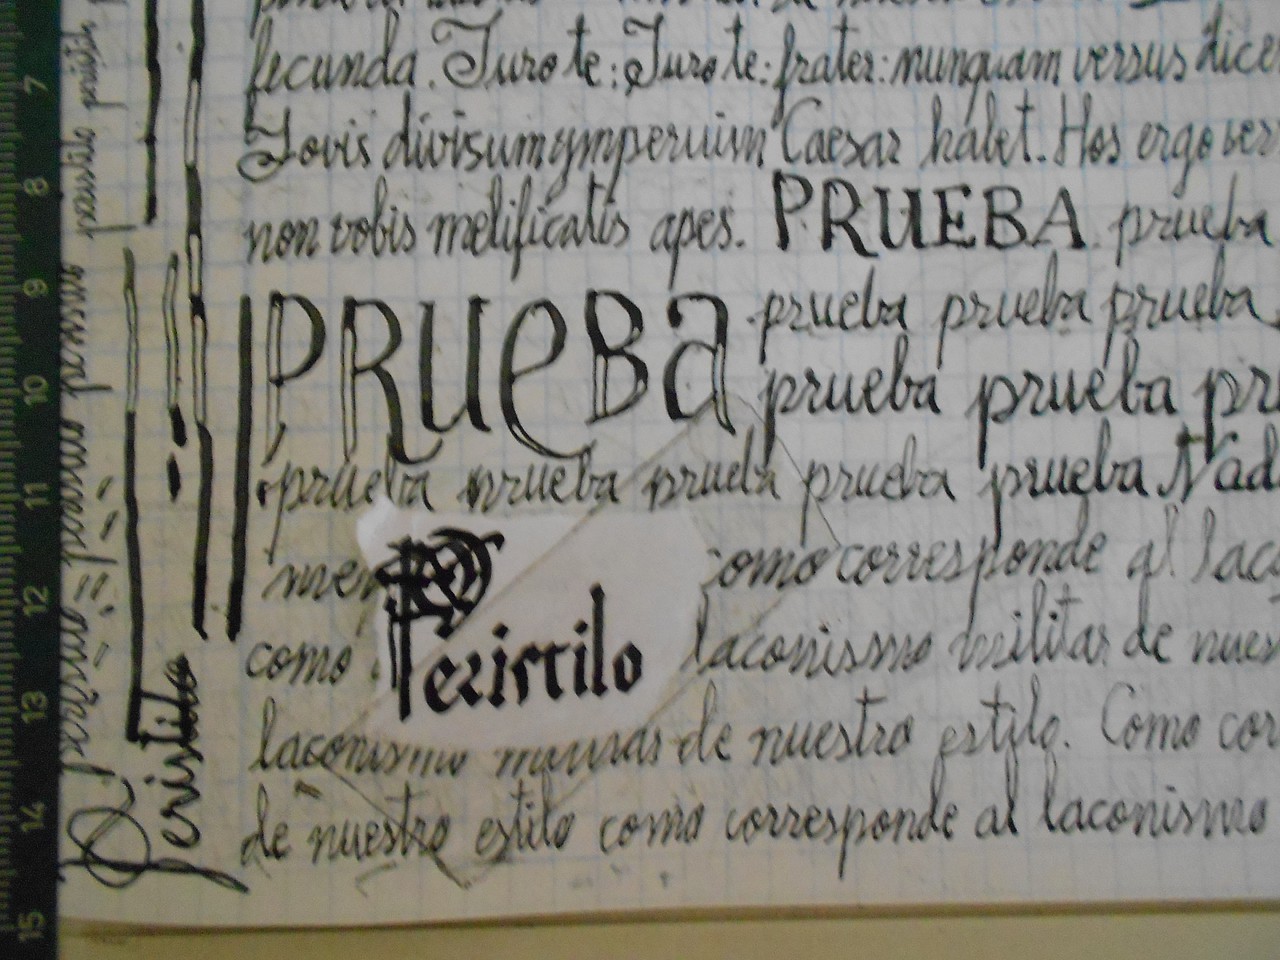 fecunda. Juro te: Juro te: frater: nunquam versus dice
Jovis divisumymperuim Caesar habet. Hos ergo ver
non vobis melificatis apes. PRUEBA. prueba
PRUEBA prueba prueba prueba
prueba prueba pru
prueba prueba prueba prueba prueba Nad
men
como corresponde al lac
como
Peristilo
laconismo militar de nues
laconismo de nuestro estilo. Como cor
de nuestro estilo como corresponde al laconismo
Peristilo
7
8
9
10
11
12
13
14
15